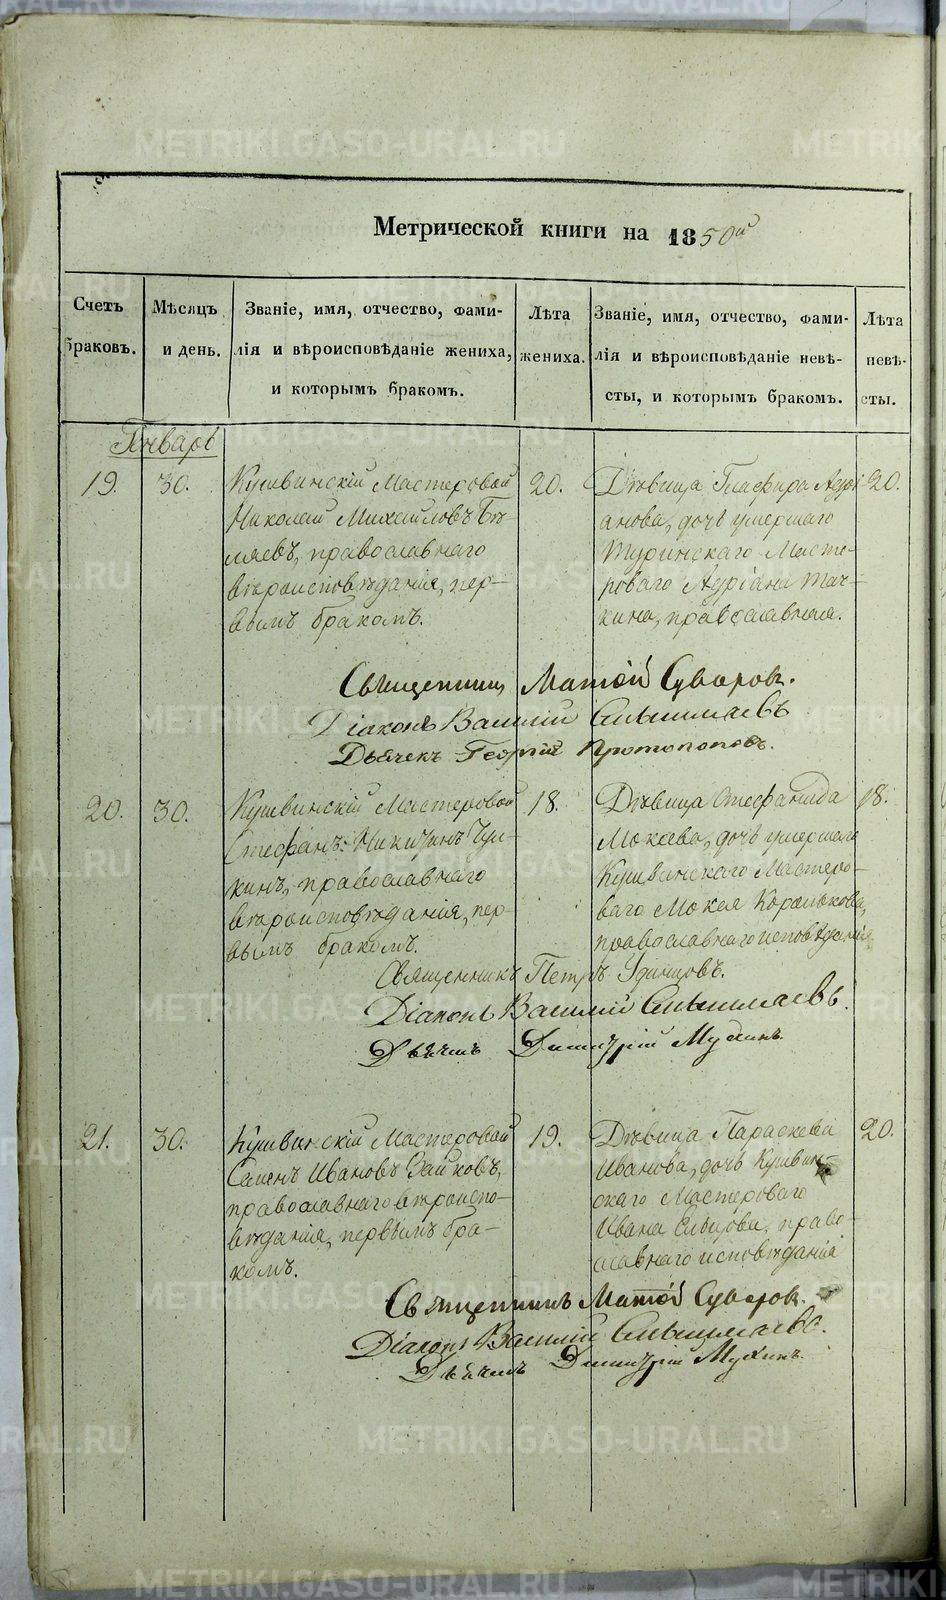 Метрической книги на 1850й
Счетъ браковъ.
Мѣсяцъ и день.
Званіе, имя, отчество, фами-
лія и вѣроисповѣданіе жениха,
и которымъ бракомъ.
Лѣта жениха.
Званіе, имя, отчество, фами-
лія и вѣроисповѣданіе невѣ-
сты, и которымъ бракомъ.
Лѣта невѣ-
сты.
Январь
19. 30.
Кушвинскій Мастеровой
Николай Михайловъ Бѣ-
ляевъ, православнаго
вѣроисповѣданія, пер-
вымъ бракомъ.
20.
Дѣвица Глафира Адрі
анова, дочь умершаго
Туринскаго Масте-
роваго Адріана Тач-
кина, православная.
20.
Священникъ Матѳій Суворовъ.
Діаконъ Василій
Дьячекъ Георгій Протопоповъ.
20. 30.
Кушвинскій Мастеровой
Стефанъ Никитинъ Чу
кинъ, православнаго
вѣроисповѣданія, пер-
вымъ бракомъ.
18.
Дѣвица Стефанида
Мокѣева, дочь умершаго
Кушвинскаго Мастеро-
ваго Мокея Королькова,
православнаго исповѣданія
18.
Священникъ Петръ Удинцовъ.
Діаконъ Василій
Дьячекъ Димитрій Мухинъ.
21. 30.
Кушвинскій Мастеровой
Семенъ Ивановъ Зайковъ,
православнаго вѣроиспо-
вѣданія, первымъ бра-
комъ.
19.
Дѣвица Параскева
Иванова, дочь Кушвин-
скаго Мастероваго
Ивана Ельцова, право-
славнаго исповѣданія
20.
Священникъ Матѳій Суворовъ.
Діаконъ Василій
Дьячекъ Димитрій Мухинъ.
METRIKI.GASO-URAL.RU